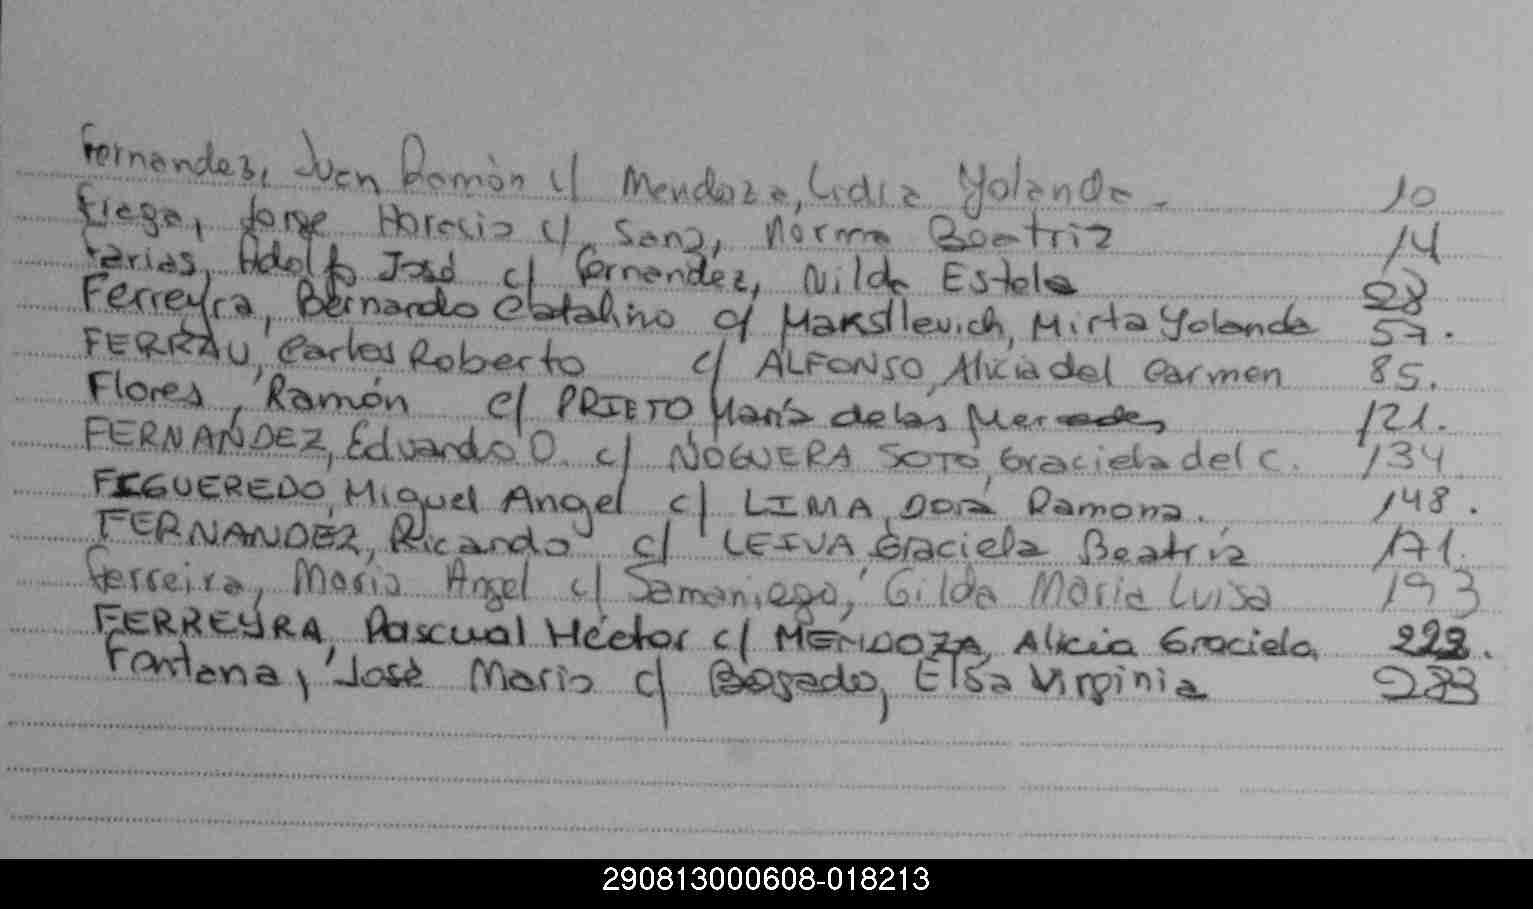 Fernandez, Juan Ramón c/ Mendoza, Lidia Yolanda - 10
Fiege, Jorge Horacio c/ Sanz, Norma Beatriz 14
Farias, Adolfo José c/ Fernandez, Nilda Estela 28
Ferreyra, Bernardo Catalino c/ Maksllevich, Mirta Yolanda 57.
FERRAU, Carlos Roberto c/ ALFONSO, Alicia del Carmen 85.
Flores, Ramón c/ PRIETO María de las Mercedes 121.
FERNANDEZ, Eduardo O. c/ NOGUERA SOTO, Graciela del C. 134
FIGUEREDO, Miguel Angel c/ LIMA, Dora Ramona. 148.
FERNANDEZ, Ricardo c/ LEIVA Graciela Beatriz 171.
Ferreira, Mario Angel c/ Samaniego, Gilda María Luisa 193
FERREYRA, Pascual Héctor c/ MENDOZA, Alicia Graciela 222.
Fontana, José Mario c/ Bogado, Elsa Virginia 233
290813000608-018213